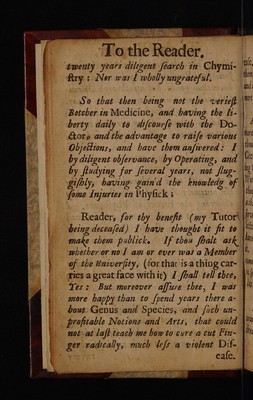 To the Reader.
twenty years diligent search in Chymi-
stry : Nor was I wholly ungrateful.
So that then being not the veriest
Botcher in Medicine, and having the li-
berty daily to discourse with the Do-
ctor, and the advantage to raise various
Objections, and have them answered: I
by diligent observance, by Operating, and
by studying for several years, not slug-
gishly, having gain'd the knowledg of
some Injuries in Physick;
Reader, for thy benefit (my Tutor
being deceased) I have thought it fit to
make them publick. If thou shalt ask
whether or no I am or ever was a Member
of the University, (for that is a thing car-
ries a great face with it) I shall tell thee,
Yes: But moreover assure thee, I was
more happy than to spend years there a-
bout Genus and Species, and such un-
profitable Notions and Arts, that could
not at last teach me how to cure a cut Fin-
ger radically, much less a violent Dis-
ease.